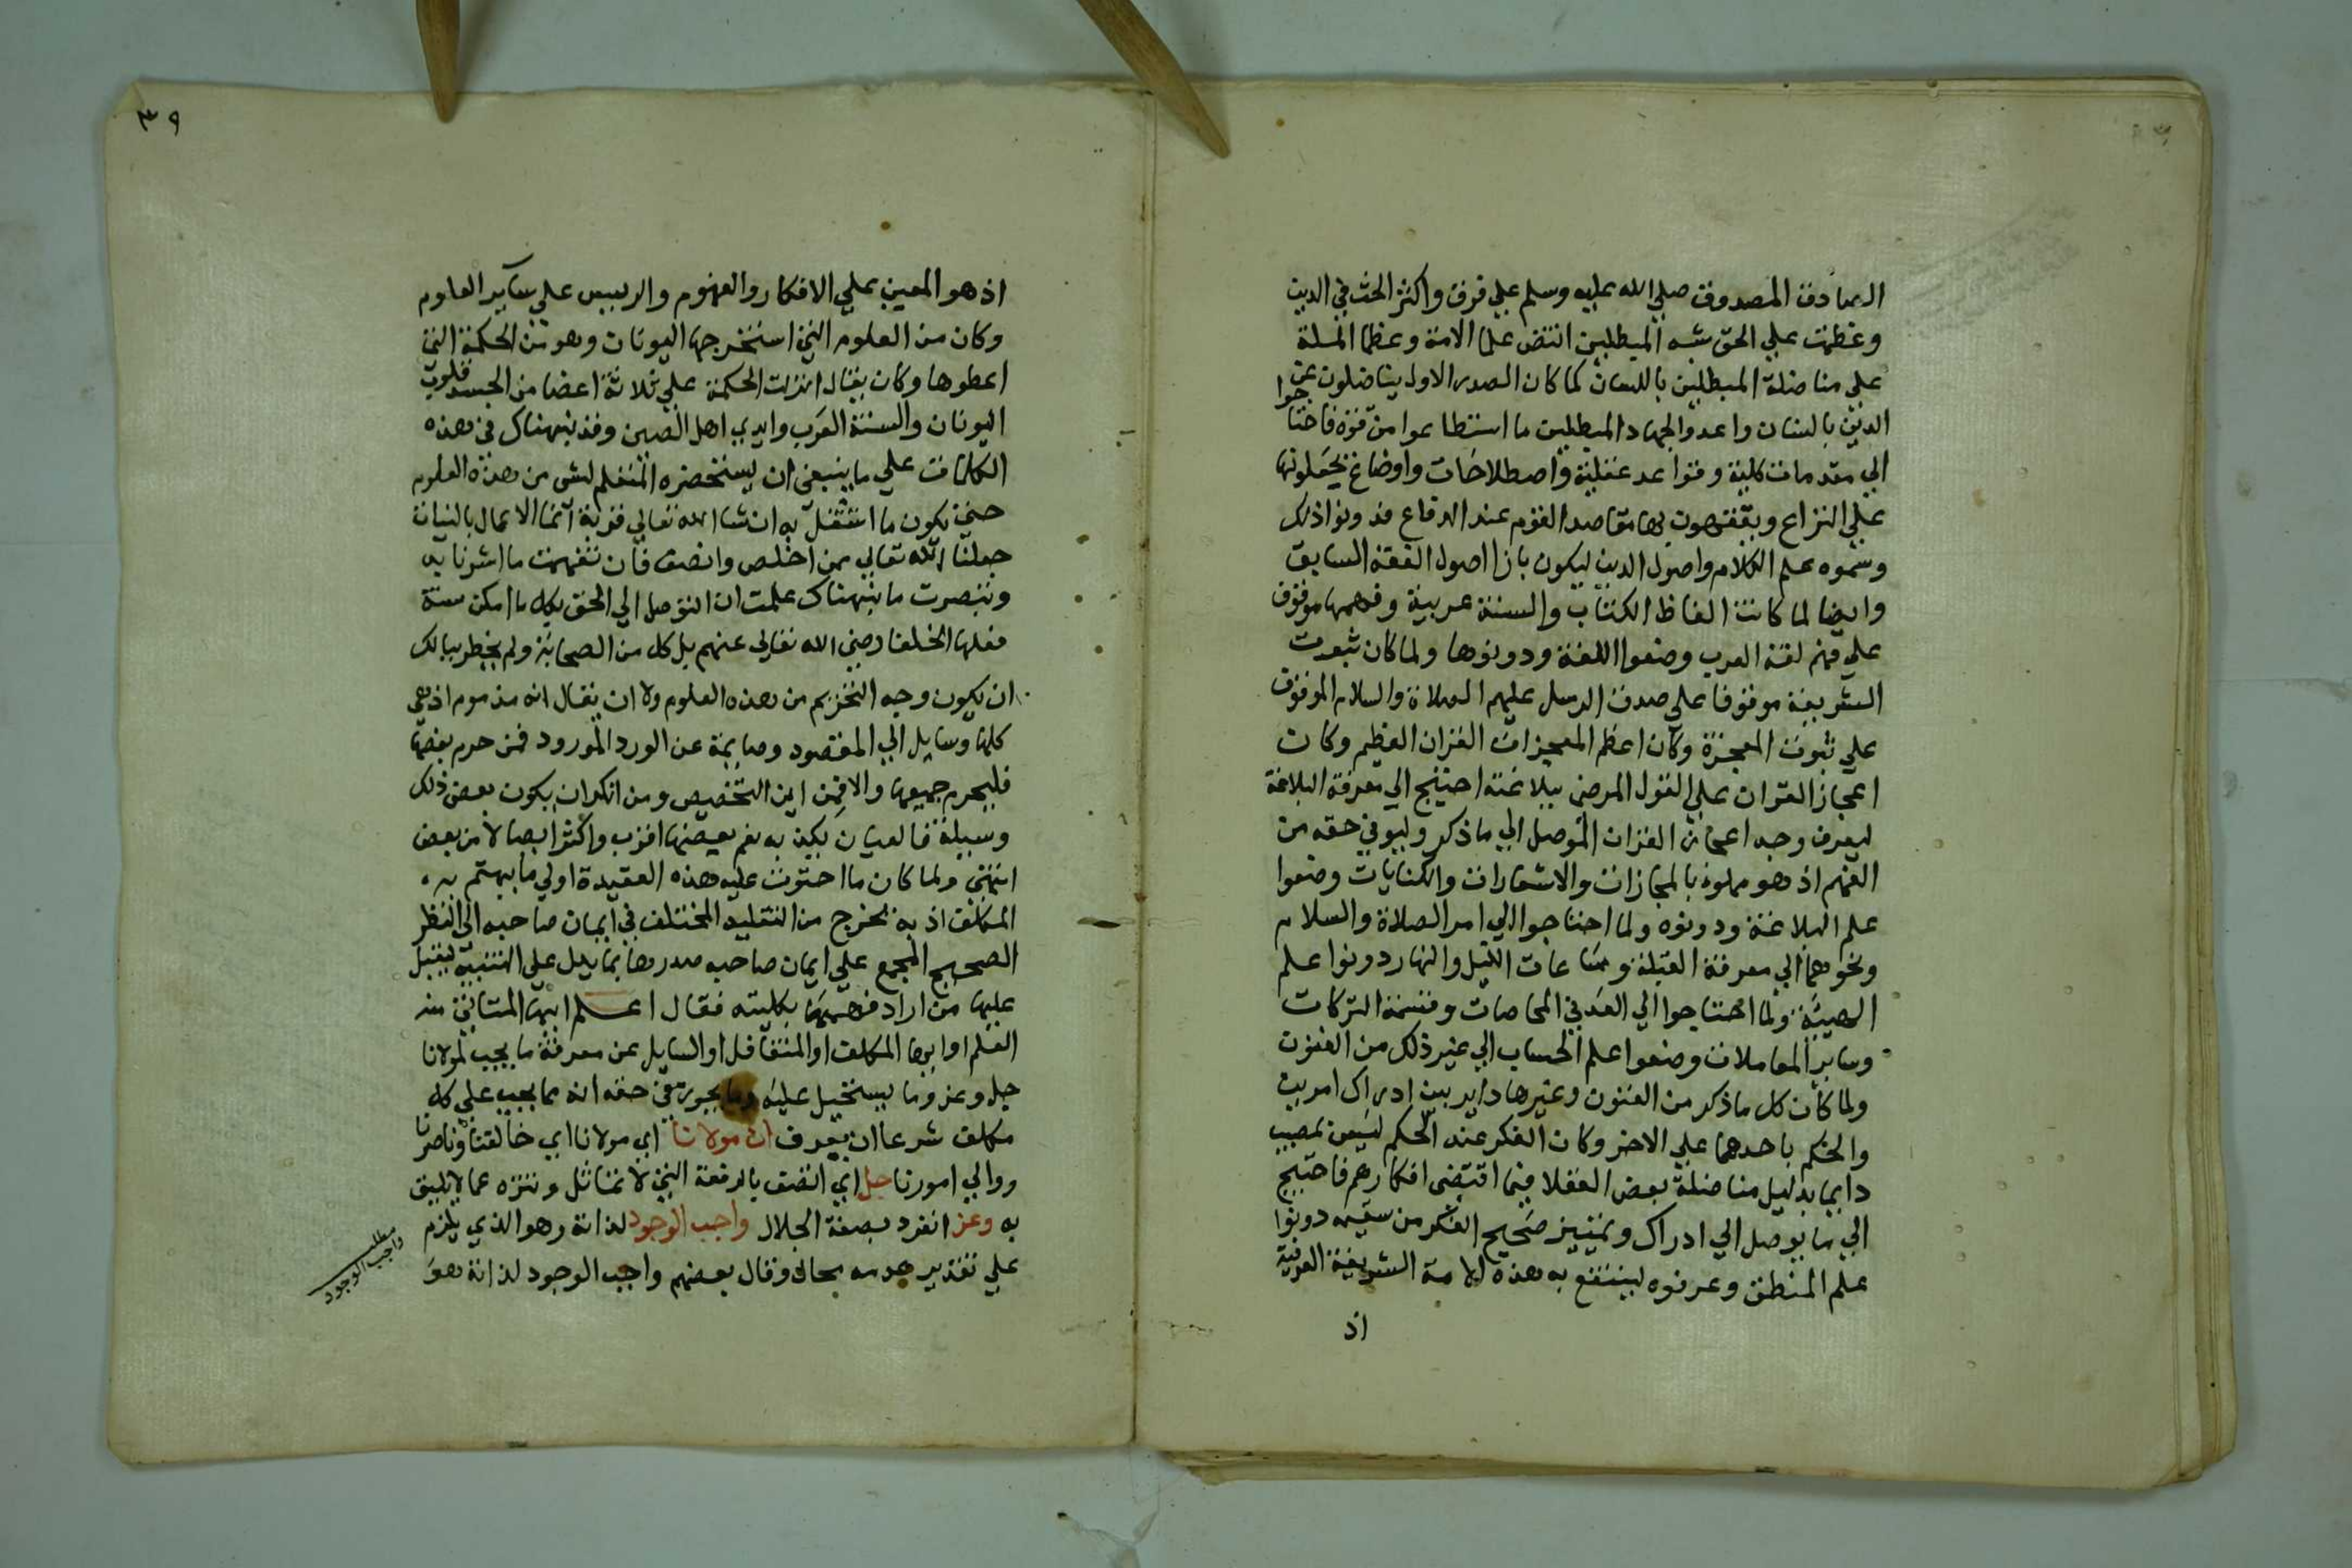 الصادق المصدوق صلي الله عليه وسلم علي فرق واكثر الحث في الدين
وعظمت علي الحق شبه المبطلين انتض علما الامة وعظما الملة
علي مناضلة المبطلين باللسان كما كان الصدر الاول يناضلون عن
الدين بالسنان واعدوا لجهاد المبطلين ما استطاعوا من قوة فاحتاجوا
الي مقدمات كلية وقواعد عقلية واصطلاحات واوضاع يجعلونها
علي النزاع ويتفقهون بها مقاصد القوم عند الدفاع فدونوا ذلك
وسموه علم الكلام واصول الدين ليكون بازا اصول الفقه السابق
وايضا لما كانت الفاظ الكتاب والسنة عربية وفهمها موقوف
علي فهم لغة العرب وضعوا اللغة ودونوها ولما كان ثبوت
الشريعة موقوفا علي صدق الرسل عليهم الصلاة والسلام الموقوف
علي ثبوت المعجزة وكان اعظم المعجزات القران العظيم وكان
اعجاز القران علي القول المرضي ببلاغته احتيج الي معرفة البلاغة
ليعرف وجه اعجاز القران الموصل الي ما ذكر وليوفي حقه من
الفهم اذ هو مملوء بالمجازات والاستعارات والكنايات وضعوا
علم البلاغة ودونوه ولما احتاجوا الي امر الصلاة والسلام
ونحوهما الي معرفة القبلة وساعات الليل والنهار دونوا علم
الهيئة ولما احتاجوا الي العد في المحاصات وقسمة التركات
وساير المعاملات وضعوا علم الحساب الي غير ذلك من الفنون
ولما كان كل ما ذكر من الفنون وغيرها داير بين ادراك امرين
والحكم باحدهما علي الاخر وكان الفكر عند الحكم ليس بمصيب
دايما بدليل مناضلة بعض العقلا فيما اقتضي افكارهم فاحتيج
الي ما يوصل الي ادراك وتمييز صحيح الفكر من سقيمه دونوا
علم المنطق وعرفوه لينتفع به هذه الامة الشريفة العربية
اذ
٣٩
اذ هو المعين علي الافكار والفهوم والرييس علي ساير العلوم
وكان من العلوم التي استخرجها اليونان وهو من الحكمة التي
اعطوها وكان يقال انزلت الحكمة علي ثلاثة اعضا من الجسد قلوب
اليونان والسنة العرب وايدي اهل الصين وقد نبهناك في هذه
الكلمات علي ما ينبغي ان يستحضره المتعلم لشي من هذه العلوم
حتي يكون ما اشتغل به ان شا الله تعالي قربة انما الاعمال بالنيات
جعلنا الله تعالي ممن اخلص وانصف فان تفهمت ما اشرنا به
وتبصرت ما نبهناك علمت ان التوصل الي الحق بكل ما امكن سنة
فعلها الخلفا رضي الله تعالي عنهم بل كل من الصحابة ولم يخطر ببالك
ان يكون وجه التحريم من هذه العلوم ولا ان يقال انه مذموم اذ هي
كلها وسايل الي المقصود وصايمة عن الورد المورود فمن حرم بعضها
فليحرم جميعها والا فمن اين التخصيص ومن انكر ان يكون بعض ذلك
وسيلة فالعيان يكذبه نعم بعضها اقرب واكثر ايصالا من بعض
انتهي ولما كان ما احتوت عليه هذه العقيدة اولي ما يهتم به
المكلف اذ به يخرج من التقليد المختلف في ايمان صاحبه الي النظر
الصحيح المجمع علي ايمان صاحبه صدرها بما يدل علي التنبيه ليقبل
عليها من اراد فهمها بكليته فقال اعلم ايها المتاني منه
العلم او ايها المكلف او المتغافل او السايل عن معرفة ما يجب لمولانا
جل وعز وما يستحيل عليه وما يجوز في حقه انه مما يجب علي كل
مكلف شرعا ان يعرف ان مولانا اي مولانا اي خالقنا وناصرنا
ووالي امورنا جل اي اتصف بالرفعة التي لا تماثل وتنزه عما لا يليق
به وعز انفرد بصفة الجلال واجب الوجود لذاته وهو الذي يلزم
علي تقدير عدمه محال وقال بعضهم واجب الوجود لذاته هو
مطلب
واجب الوجود